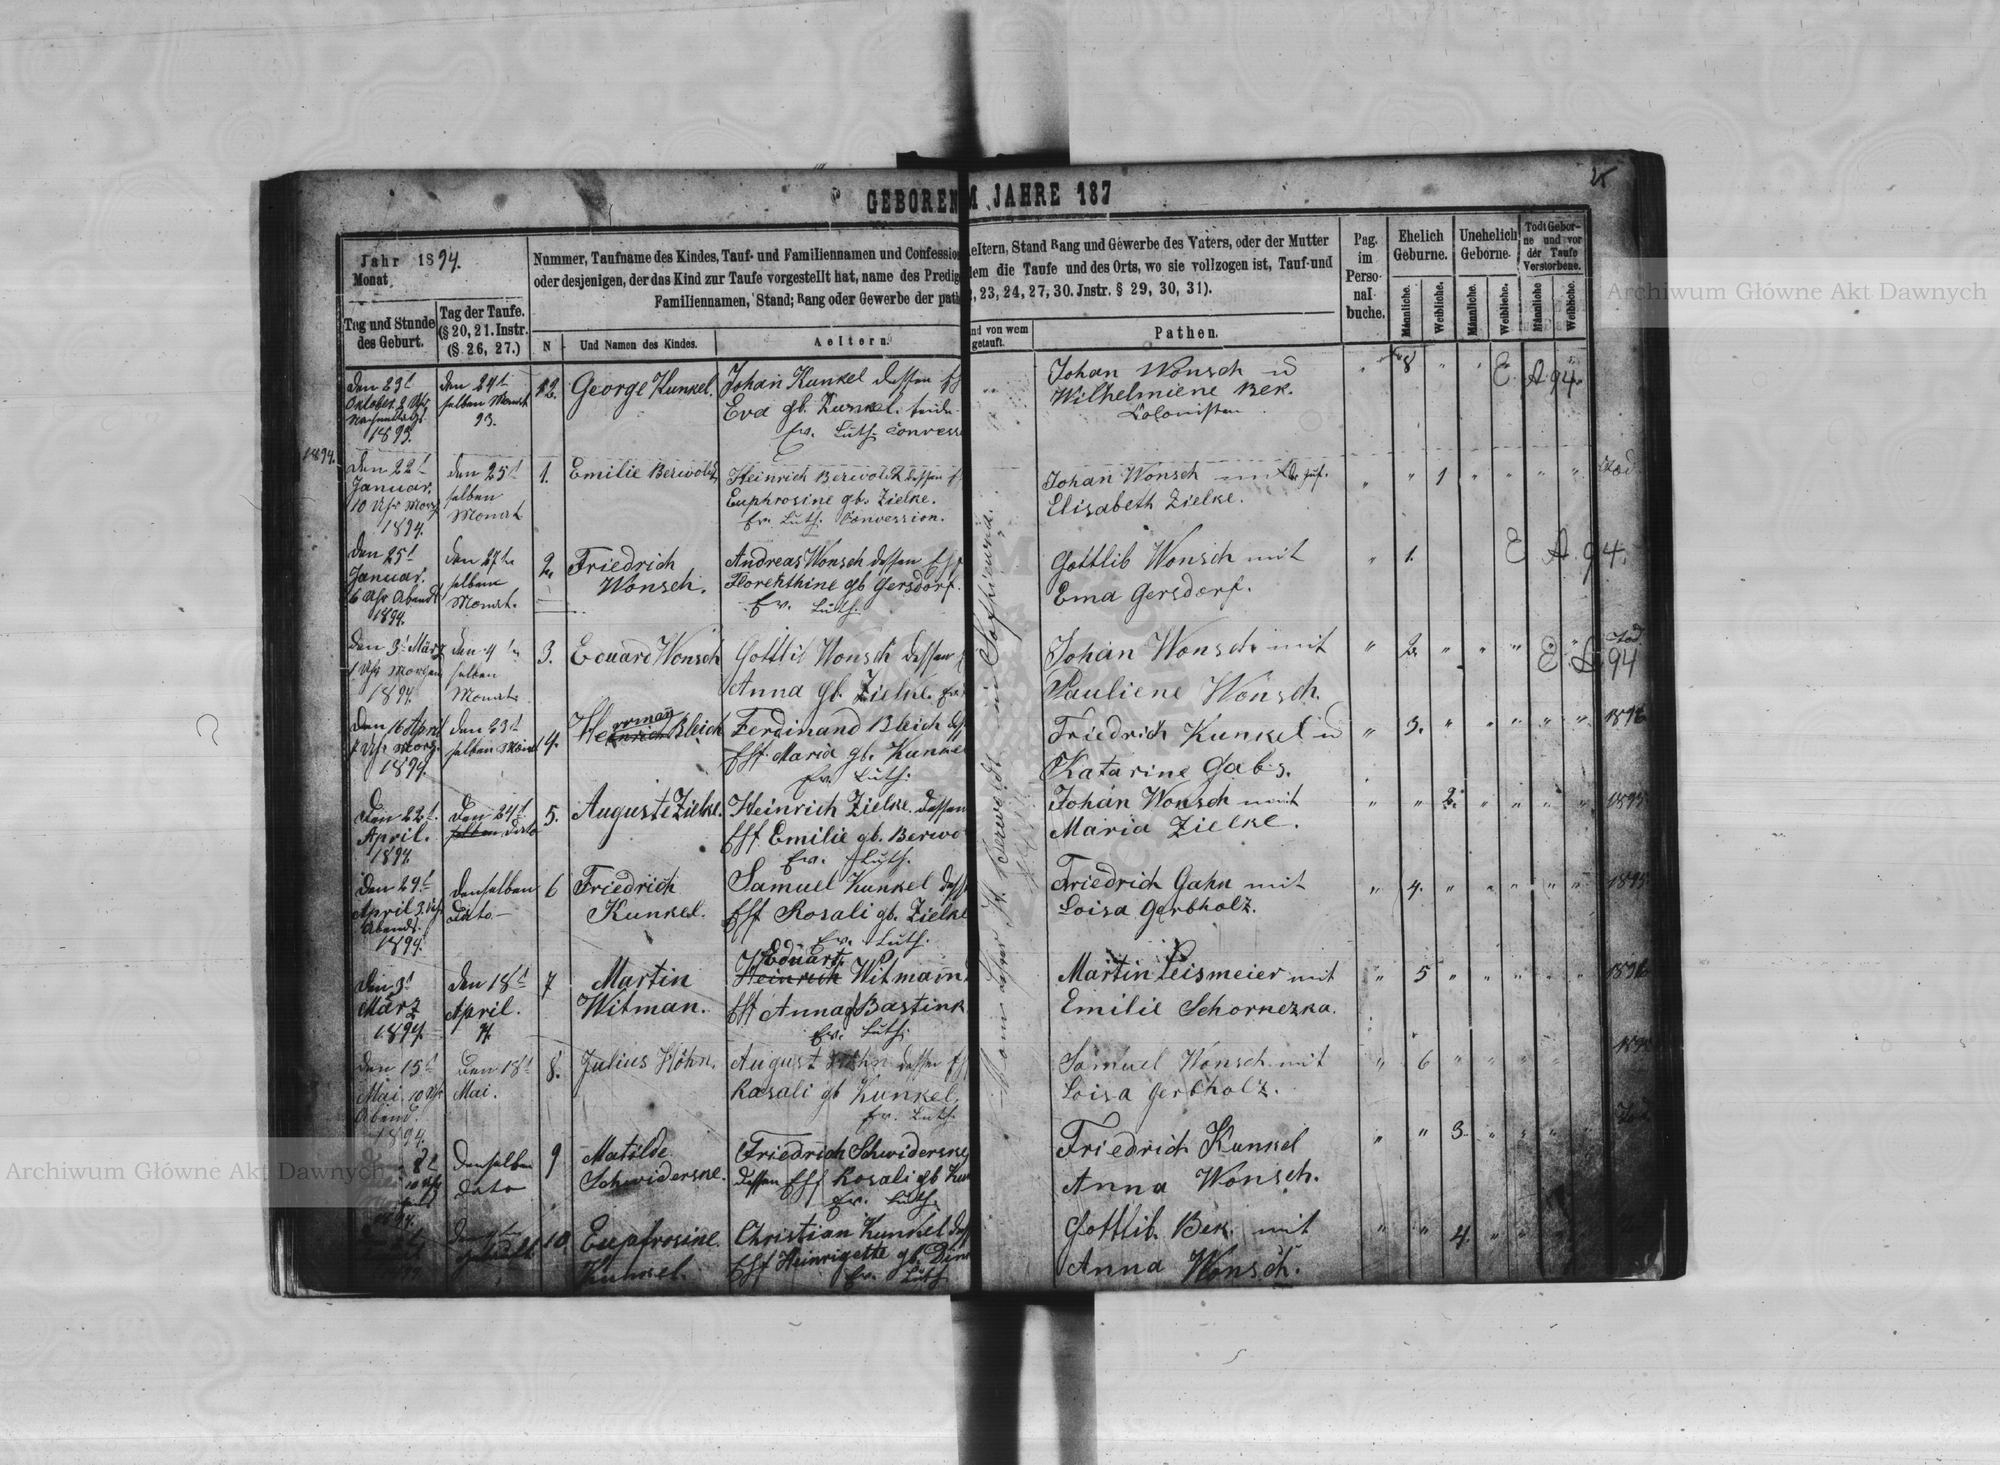 GEBOREN M JAHRE 187
25
Jahr 1894.
Monat
Tag und Stunde
des Geburt.
Tag der Taufe.
(§ 20, 21. Instr.
(§ 26, 27.)
Nummer, Taufname des Kindes, Tauf- und Familiennamen und Confession
oder desjenigen, der das Kind zur Taufe vorgestellt hat, name des Predig
Familiennamen, Stand; Rang oder Gewerbe der path
N
Und Namen des Kindes.
Aeltern.
eltern, Stand Rang und Gewerbe des Vaters, oder der Mutter
dem die Taufe und des Orts, wo sie vollzogen ist, Tauf-und
, 23, 24, 27, 30. Jnstr. § 29, 30, 31).
nd von wem
getauft.
Pathen.
Pag.
im
Perso-
nal-
buche.
Ehelich
Geburne.
Unehelich
Geborne.
Todt Gebor-
ne und vor
der Taufe
Verstorbene.
Männliche.
Weibliche.
Männliche.
Weibliche.
Männliche.
Weibliche.
den 23t
Oktober 8 Uhr
Nachmittags
1893.
den 24t
selben Monat
93.
12.
George Kunkel.
Johan Kunkel dessen Eh
Eva gb. Kunkel. beide
Ev. Luth. Convess
Johan Wonsch u
Wilhelmiene Bek.
Colonisten
8
E A 94.
1894.
den 22t
Januar.
10 Uhr Morg
1894.
den 25t
selben
Monat
1.
Emilie Berwoldt
Heinrich Berwoldt dessen Eh
Euphrosine gb. Zielke.
Ev. Luth. Convession.
Johan Wonsch mit
Elisabeth Zielke.
1
Tod
den 25t
Januar.
6 Uhr Abends
1894.
den 27t
selben
Monat.
2.
Friedrich
Wonsch.
Andreas Wonsch dessen Ehf
Florenthine gb Gersdorf.
Ev. Luth.
Gottlib Wonsch mit
Ema Gersdorf.
1.
E A 94.
den 3t März
1 Uhr Morgen
1894.
den 4t
selben
Monats
3.
Eduard Wonsch
Gottlib Wonsch dessen
Anna gb. Zielke. Ev.
Johan Wonsch mit
Pauliene Wonsch.
2.
Tod
94
den 16 April
Uhr Morg.
1894.
den 23t
selben Monat
4.
Herman Bleich
Ferdinand Bleich des
Ehf. Maria gb. Kunkel
Ev. Luth.
Friedrich Kunkel u
Katarine Gabs.
3.
1896
den 22t
April.
1894.
den 24t
selben dato
5.
Auguste Zielke.
Heinrich Zielke dessen
Ehf Emilie gb. Berwo
Ev. Luth.
Johan Wonsch mit
Maria Zielke.
2.
1895
den 29t
April 3 Uhr
Abends.
1894.
denselben
dato
6
Friedrich
Kunkel.
Samuel Kunkel dess
Ehf Rosali gb. Zielke
Ev. Luth.
Friedrich Gahn mit
Loisa Gerbholz.
4.
1895
den 3t
März
1894.
den 18t
April.
7
Martin
Witman.
Eduart
Heinrich Witmann
Ehf Anna g Bastink
Ev. Luth.
Martin Leismeier mit
Emilie Schornezka.
5
1896
den 15t
Mai 10 Uhr
Abend.
1894.
den 18t
Mai.
8.
Julius Höhn.
August Höhn dessen Ehf
Rosali gb Kunkel.
Ev. Luth.
Samuel Wonsch mit
Loisa Gerbholz.
6
1895
8t
10 Uhr
1894.
denselben
dato
9
Matilde
Schwiderske.
Friedrich Schwiderske
dessen Ehf Rosali gb Kun
Ev. Luth.
Friedrich Kunkel
Anna Wonsch.
3
10.
Eupfrosine
Kunkel.
Christian Kunkel des
Ehf Heinrigette gb. Din
Ev. Luth
Gottlib. Bek. mit
Anna Wonsch.
4.
Archiwum Główne Akt Dawnych
Archiwum Główne Akt Dawnych